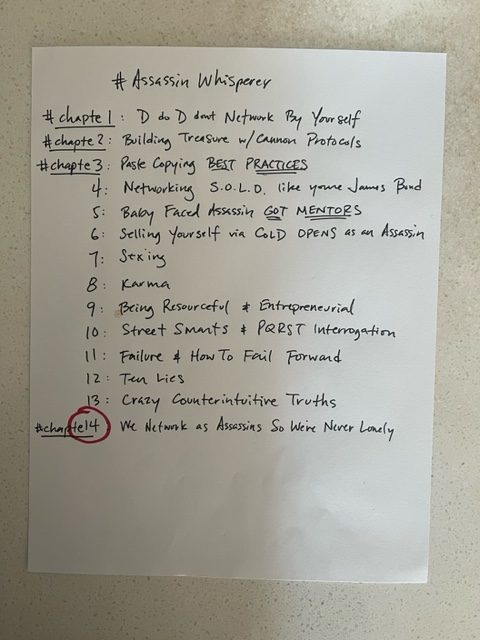 # Assassin Whisperer
#chapte 1: D do D dont Network By Yourself
#chapte 2: Building Treasure w/ Cannon Protocols
#chapte 3: Paste Copying BEST PRACTICES
4: Networking S.O.L.D. like youre James Bond
5: Baby Faced Assassin GOT MENTORS
6: Selling Yourself via COLD OPENS as an Assassin
7: Sexing
8: Karma
9: Being Resourceful & Entrepreneurial
10: Street Smarts & PQRST Interrogation
11: Failure & How To Fail Forward
12: Ten Lies
13: Crazy Counterintuitive Truths
#chapte 14 We Network as Assassins So We're Never Lonely